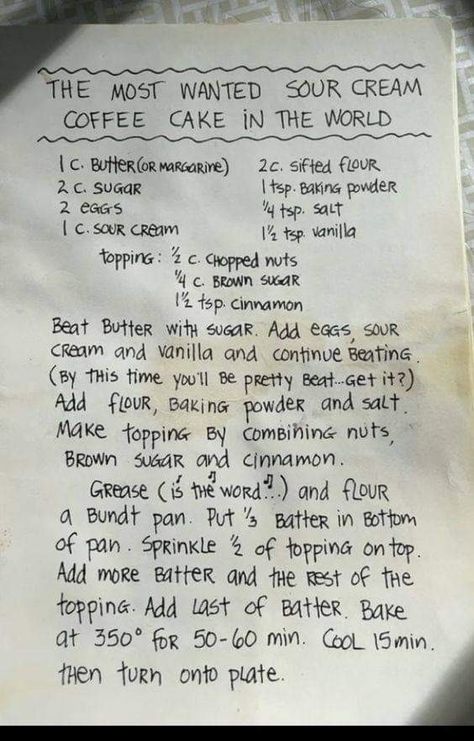 THE MOST WANTED SOUR CREAM
COFFEE CAKE IN THE WORLD
1 C. BUTTER (OR MARGARINE) 2 C. Sifted FLOUR
2 C. SUGAR 1 tsp. BAKING powder
2 eGGS ¼ tsp. SALT
1 C. SOUR CREAM 1½ tsp. vanilla
topping: ½ C. CHopped nuts
¼ C. BROWN SUGAR
1½ tsp. cinnamon
BEAT BUTTER WITH SUGAR. Add eGGS, SOUR
CREAM and vanilla and continue BeatinG.
(BY THIS time you'll Be pretty Beat...Get it?)
Add flour, BAKING powder and SALT.
Make topping By combining nuts,
BROWN SUGAR and cinnamon.
GREASE (is the word...) and FLOUR
a Bundt pan. Put ⅓ BATTER in Bottom
of pan. SPRINKLE ½ of topping on top.
Add more BATTER and the Rest of the
topping. Add Last of BATTER. BAKE
at 350° foR 50-60 min. COOL 15 min.
then turn onto plate.